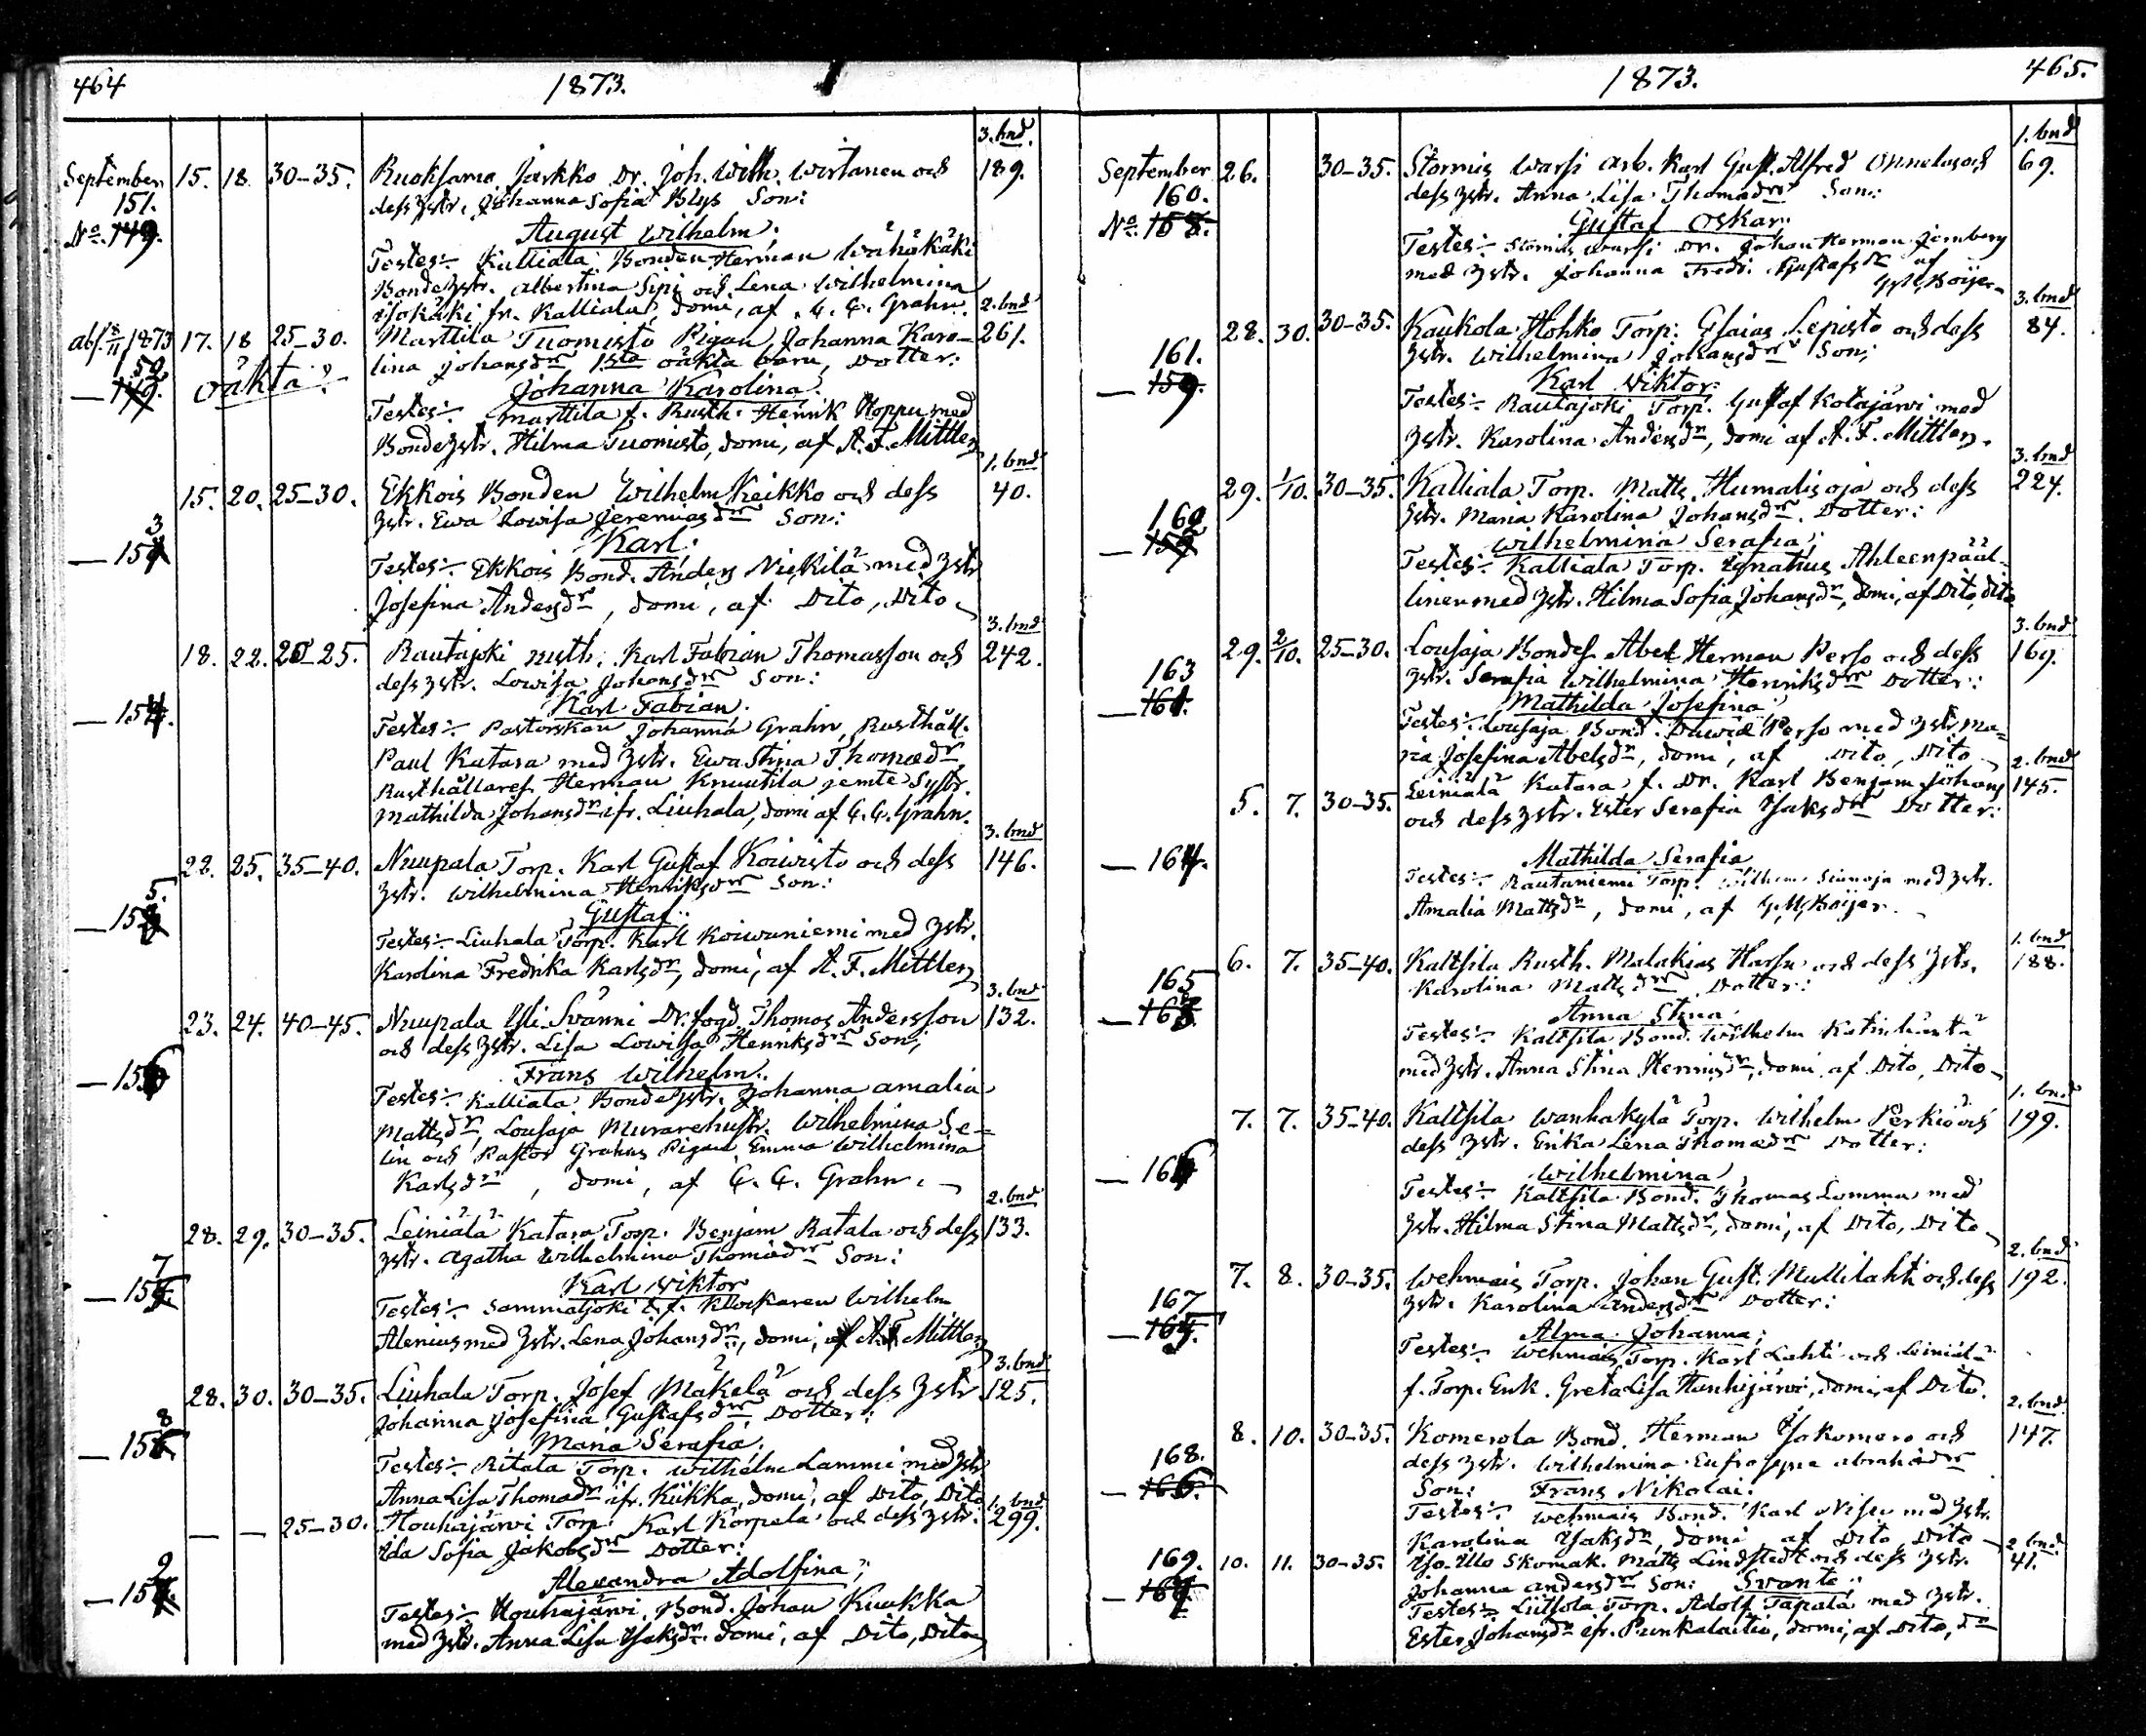 464
1873.
3. bnd.
September 15. 18. 30-35. Ruoksama Jaskko Dr. Joh. Wilh. Wirtanen och 189.
151. dess hstr. Johanna Sofia Blys Son:
No. 149. August Wilhelm;
Testes:- Kalliala Bonden Herman Wähäkäki
Bondehstr. Albertina Sipi och Lena Wilhelmina
Isokäki fr. Kalliala, domi, af C. G. Grahn. 2. bnd
abs. 8/11 1873 17. 18 25-30. Marttila Tuomisto Pigan Johanna Karo- 261.
152. oäkta lina Johansdr 1sta oäkta barn, Dotter:
— 149. Johanna Karolina.
Testes:- Marttila f. Rusth. Henrik Hoppu med
Bondehstr. Hilma Tuomisto, domi, af A. F. Mittler
1. bnd
15. 20. 25-30. Ekkois Bonden Wilhelm Keikko och dess 40.
hstr. Ewa Lowisa Jeremiasdr Son:
3
— 151 Karl.
Testes:- Ekkois Bond. Anders Niekilä med hstr
Josefina Andersdr, domi, af Dito, Dito
3. bnd
18. 22. 20-25. Rautajoki rusth. Karl Fabian Thomasson och 242.
dess hstr. Lowisa Johansdr Son:
— 154. Karl Fabian.
Testes:- Pastorskan Johanna Grahn, Rusthåll.
Paul Katara med hstr. Ewa Stina Thomædr,
Rusthållares. Herman Knuutila jemte Systr.
Mathilda Johansdr ifr. Liuhala, domi af C. G. Grahn.
3. bnd
22. 25. 35-40. Nuupala Torp. Karl Gustaf Koiwisto och dess 146.
hstr. Wilhelmina Henriksdr Son:
5.
— 153 Gustaf:
Testes:- Liuhala Torp. Karl Koiwuniemi med hstr.
Karolina Fredrika Karlsdr, domi, af A. F. Mittler
3. bnd
23. 24. 40-45. Nuupala Yli Svänni Dr. fogd. Thomas Andersson 132.
och dess hstr. Lisa Lowisa Henriksdr Son;
— 156 Frans Wilhelm.
Testes:- Kalliala Bondehstr. Johanna Amalia
Mattsdr, Lousaja Murarehustr. Wilhelmina Se-
lin och Pastor Grahns Pigan Emma Wilhelmina
Karlsdr, domi, af C. G. Grahn.
2. bnd
28. 29. 30-35. Leiniälä Katara Torp. Benjam Ratala och dess 133.
hstr. Agatha Wilhelmina Thomædr Son:
7
— 155 Karl Wiktor
Testes:- Sammaljoki t. f. Klockaren Wilhelm
Alenius med hstr. Lena Johansdr, domi, af A. F. Mittler
3. bnd
28. 30. 30-35. Liuhala Torp. Josef Mäkelä och dess hstr 125.
Johanna Josefina Gustafsdr Dotter:
8
— 156 Maria Serafia.
Testes:- Ritala Torp. Wilhelm Lammi med hstr
Anna Lisa Thomædr ifr. Kiikka, domi, af Dito, Dito
1. bnd
— — 25-30. Houhajärvi Torp. Karl Korpela och dess hstr. 299.
Ida Sofia Jakobsdr Dotter:
9
— 157. Alexandra Adolfina;
Testes:- Houhajärvi Bond. Johan Kuukka
med hstr. Anna Lisa Isaksdr. domi, af Dito, Dito
465.
1873.
1. bnd
September 26. 30-35. Stormis Warsi arb. Karl Gust. Alfred Onnelas och 69.
160. dess hstr. Anna Lisa Thomædr Son:
No. 158. Gustaf Oskar:
Testes:- Stormis Warsi Dr. Johan Herman Jernberg
med hstr. Johanna Fredr. Gustafsdr af
G. M. Boijer
3. bnd
28. 30. 30-35. Kaukola Hohko Torp. Esaias Lepisto och dess 84.
161. hstr. Wilhelmina Johansdr Son;
— 159. Karl Wiktor:
Testes:- Rautajoki Torp. Gustaf Kotajärvi med
hstr. Karolina Andersdr, domi af A. F. Mittler.
3. bnd
29. 1/10. 30-35. Kalliala Torp. Matts Humalisoja och dess 224.
162 hstr. Maria Karolina Johansdr. Dotter:
— 159 Wilhelmina Serafia;
Testes:- Kalliala Torp. Ignatius Ahleenpääl-
linen med hstr. Hilma Sofia Johansdr, domi, af Dito, dito
3. bnd
29. 2/10. 25-30. Lousaja Bondes. Abel Herman Perso och dess 169.
163 hstr. Serafia Wilhelmina Henriksdr Dotter:
— 161. Mathilda Josefina
Testes:- Lousaja Bond. Dawid Perso med hstr. Ma-
ria Josefina Abelsdr, domi, af Dito, Dito
2. bnd
5. 7. 30-35. Leiniälä Katara f. Dr. Karl Benjam. Johans 145.
och dess hstr. Ester Serafia Isaksdr Dotter:
— 164. Mathilda Serafia
Testes:- Rautaniemi Torp. Wilhelm Sianoja med hstr.
Amalia Mattsdr, domi, af G. M. Boijer.
1. bnd
6. 7. 35-40. Kaltsila Rusth. Malakias Harsu och dess hstr. 188.
165 Karolina Mattsdr. Dotter:
— 163. Anna Stina
Testes:- Kaltsila Bond. Wilhelm Katinhäntä
med hstr. Anna Stina Hermsdr, domi, af Dito, Dito
1. bnd
7. 7. 35-40. Kaltsila Wanhakylä Torp. Wilhelm Perkiö och 199.
dess hstr. Erika Lena Thomædr Dotter:
— 166 Wilhelmina,
Testes:- Kaltsila Bond. Thomas Lomma med
hstr. Hilma Stina Mattsdr, domi, af Dito, Dito
2. bnd
7. 8. 30-35. Wehmais Torp. Johan Gust. Mullilahti och dess 192.
167 hstr. Karolina Andersdr Dotter:
— 165. Alma Johanna;
Testes:- Wehmais Torp. Karl Lahti och Leiniälä
f. Torp. Enk. Greta Lisa Hanhijärvi, domi, af Dito.
2. bnd
8. 10. 30-35. Komerola Bond. Herman Isokomero och 147.
168. dess hstr. Wilhelmina Eufrosyna Abrahamsdr
— 166. Son: Frans Nikolai:
Testes:- Wehmais Bond. Karl Nisu med hstr.
Karolina Isaksdr, domi af Dito, Dito
2. bnd.
169. 10. 11. 30-35. Iso-Ulo Skomak. Matts Lindstedt och dess hstr. 41.
— 167 Johanna Andersdr Son: Svante:
Testes:- Liitsola Torp. Adolf Tapala med hstr.
Ester Johansdr ifr. Punkalaitio, domi, af Dito, Do